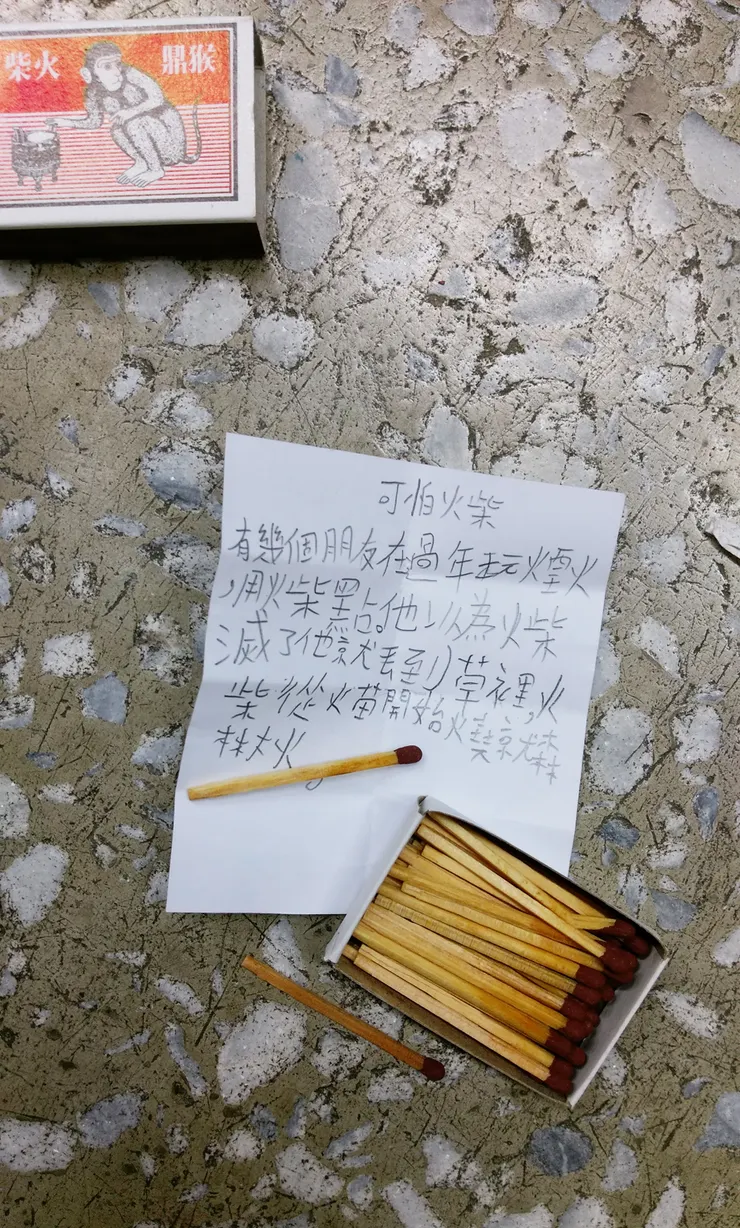 猴鼎 火柴
可怕火柴
有幾個朋友在過年玩煙火
,用火柴點。他以為火柴
滅了他就丟到草裡,火
柴從火苗開始燒就森
林大火。